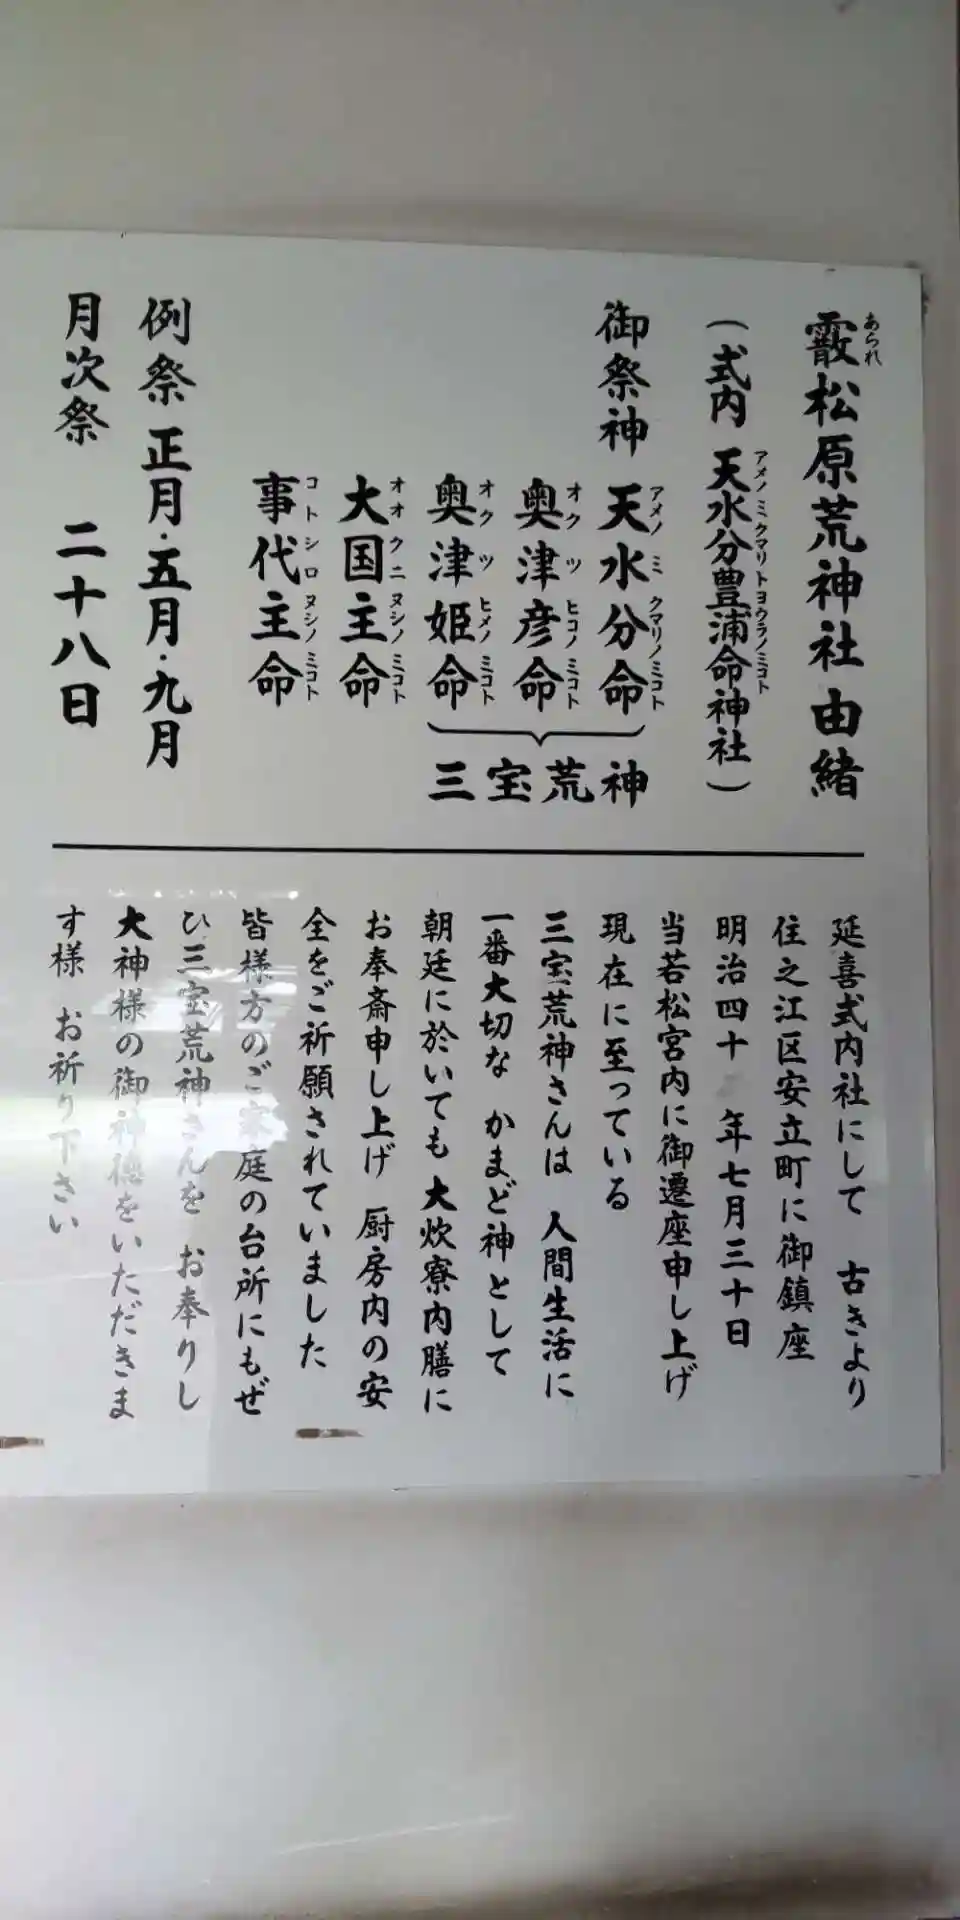 霰松原荒神社 由緒
あられ
(式内 天水分豊浦命神社)
アメノミクマリトヨウラノミコト
御祭神 天水分命
アメノ ミ クマリノ ミコト
奥津彦命
オクツ ヒコノ ミコト
奥津姫命
オクツ ヒメノ ミコト
三宝荒神
大国主命
オオクニ ヌシノ ミコト
事代主命
コトシロ ヌシノ ミコト
例祭 正月・五月・九月
月次祭 二十八日
延喜式内社にして 古きより
住之江区安立町に御鎮座
明治四十 年七月三十日
当若松宮内に御遷座申し上げ
現在に至っている
三宝荒神さんは 人間生活に
一番大切な かまど神として
朝廷に於いても 大炊寮内膳に
お奉斎申し上げ 厨房内の安
全をご祈願されていました
皆様方のご家庭の台所にもぜ
ひ三宝荒神さんを お奉りし
大神様の御神徳をいただきま
す様 お祈り下さい